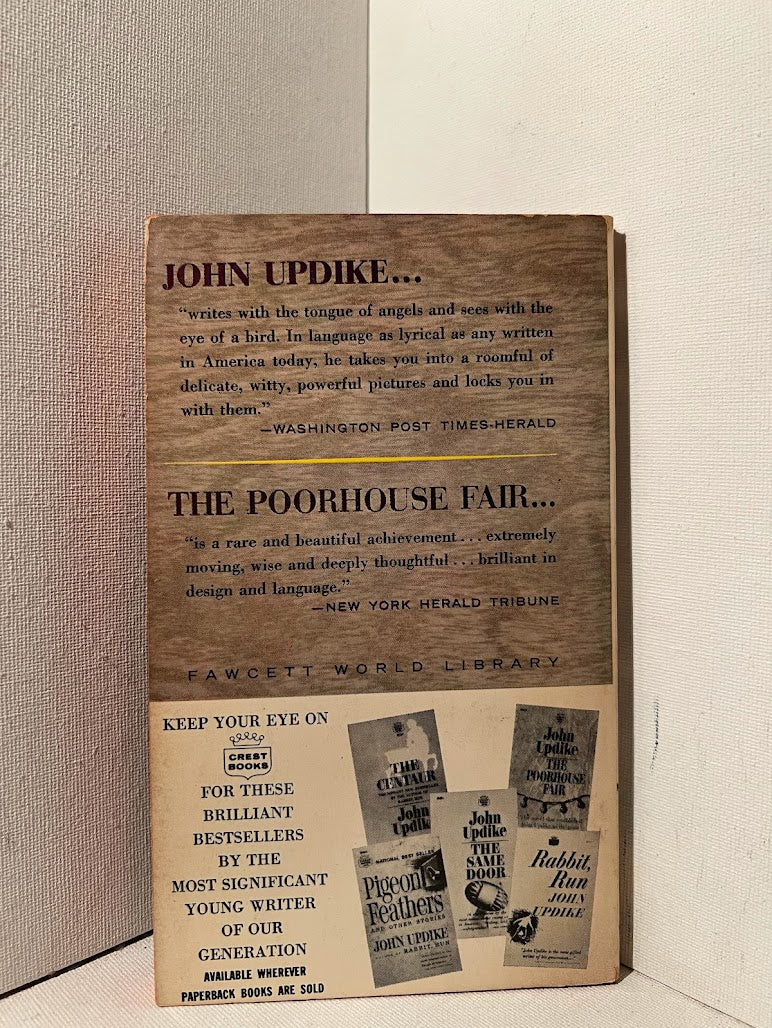 JOHN UPDIKE...
“writes with the tongue of angels and sees with the
eye of a bird. In language as lyrical as any written
in America today, he takes you into a roomful of
delicate, witty, powerful pictures and locks you in
with them.”
—WASHINGTON POST TIMES-HERALD
THE POORHOUSE FAIR...
“is a rare and beautiful achievement... extremely
moving, wise and deeply thoughtful... brilliant in
design and language.”
—NEW YORK HERALD TRIBUNE
FAWCETT WORLD LIBRARY
KEEP YOUR EYE ON
CREST
BOOKS
FOR THESE
BRILLIANT
BESTSELLERS
BY THE
MOST SIGNIFICANT
YOUNG WRITER
OF OUR
GENERATION
AVAILABLE WHEREVER
PAPERBACK BOOKS ARE SOLD
THE
CENTAUR
John
Updike
THE
POORHOUSE
FAIR
John
Updike
THE
SAME
DOOR
NATIONAL BEST SELLER
Pigeon
Feathers
AND OTHER STORIES
JOHN UPDIKE
Rabbit,
Run
JOHN
UPDIKE